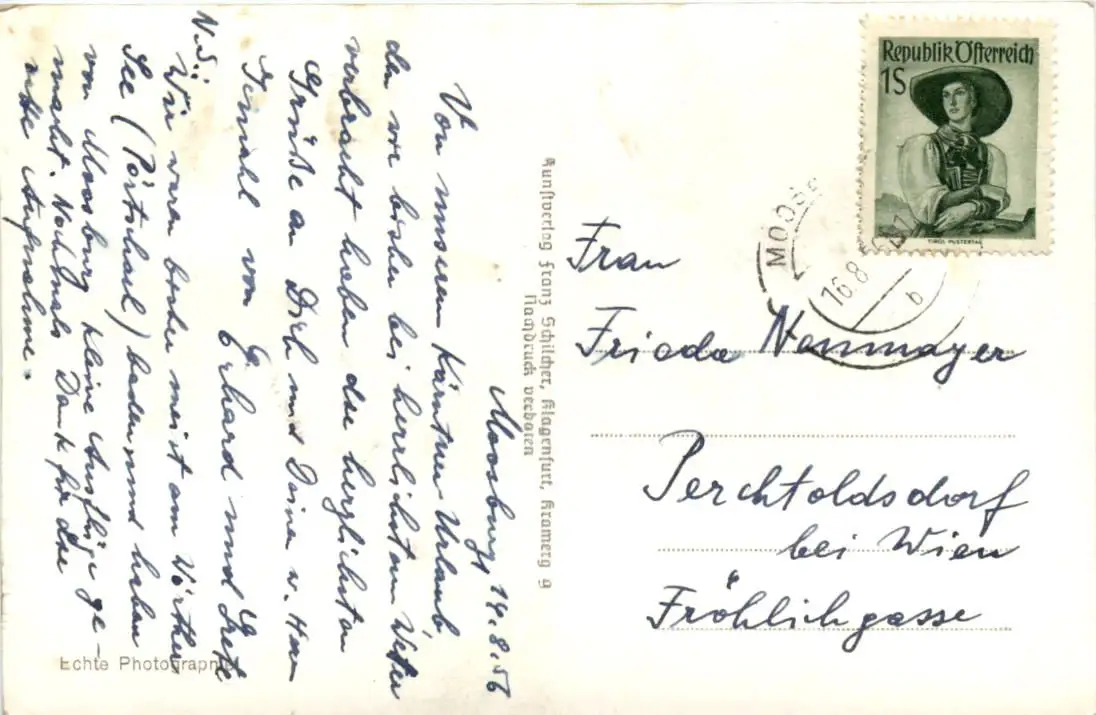 Moosburg, 14.8.56
Von unserem Kärntner Urlaub,
den wir bisher bei herrlichstem Wetter
verbracht haben die herzlichsten
Grüße an Dich und Deinen w. Herrn
Gemahl von Erhard und Grete
N.S.:
Wir waren bisher meist am Wörther
See (Pörtschach) baden und haben
von Moosburg kleine Ausflüge ge-
macht. Nochmals Dank für die
nette Aufnahme.
Echte Photographie
Kunstverlag Franz Schilcher, Klagenfurt, Kramerg 9
Nachdruck verboten
Republik Österreich
1S
TIROL PUSTERTAL
MOOSB
16.8
b
Frau
Frieda Neumayer
Perchtoldsdorf
bei Wien
Fröhlichgasse